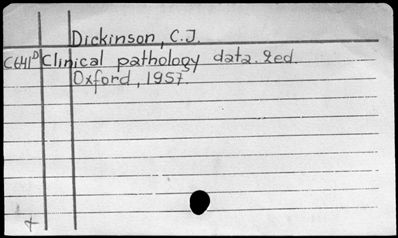 Dickinson, C.J.
C641D Clinical pathology data. 2ed.
Oxford, 1957.